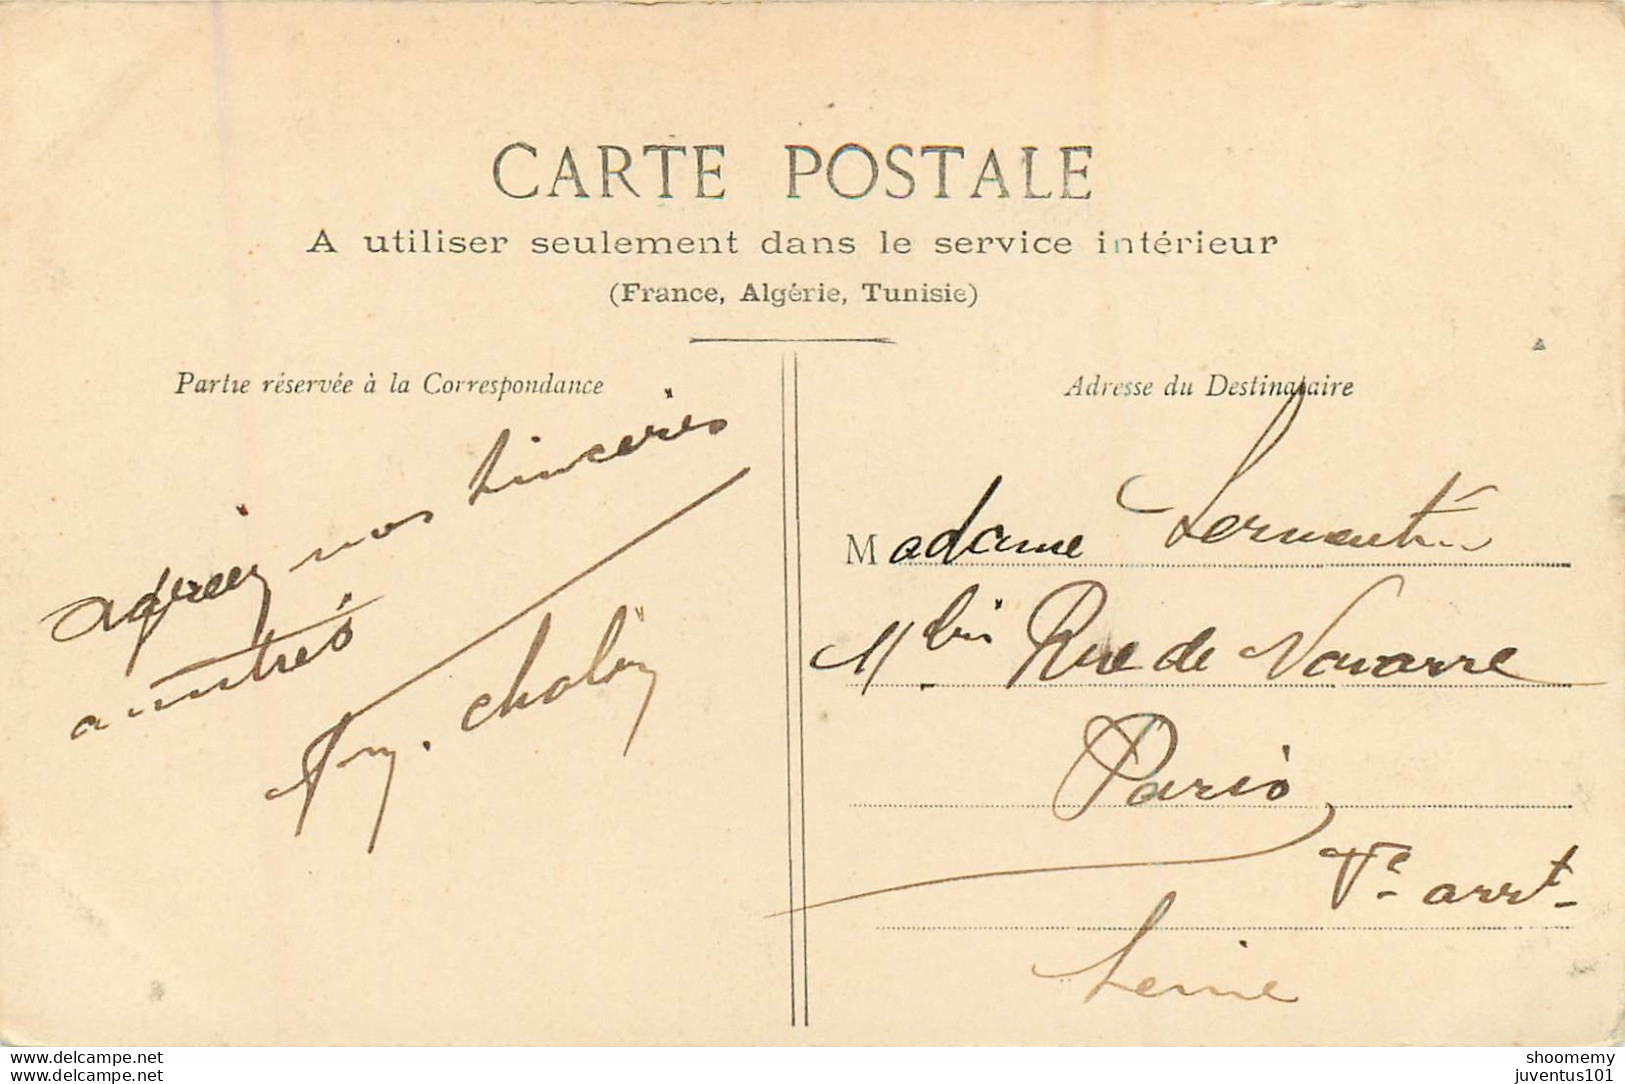 CARTE POSTALE
A utiliser seulement dans le service intérieur
(France, Algérie, Tunisie)
Partie réservée à la Correspondance
agréez nos sincères
amitiés
Adresse du Destinataire
Madame
11 bis Rue de Navarre
Paris
Ve arrt
Seine
www.delcampe.net
www.delcampe.net
shoomemy
juventus101